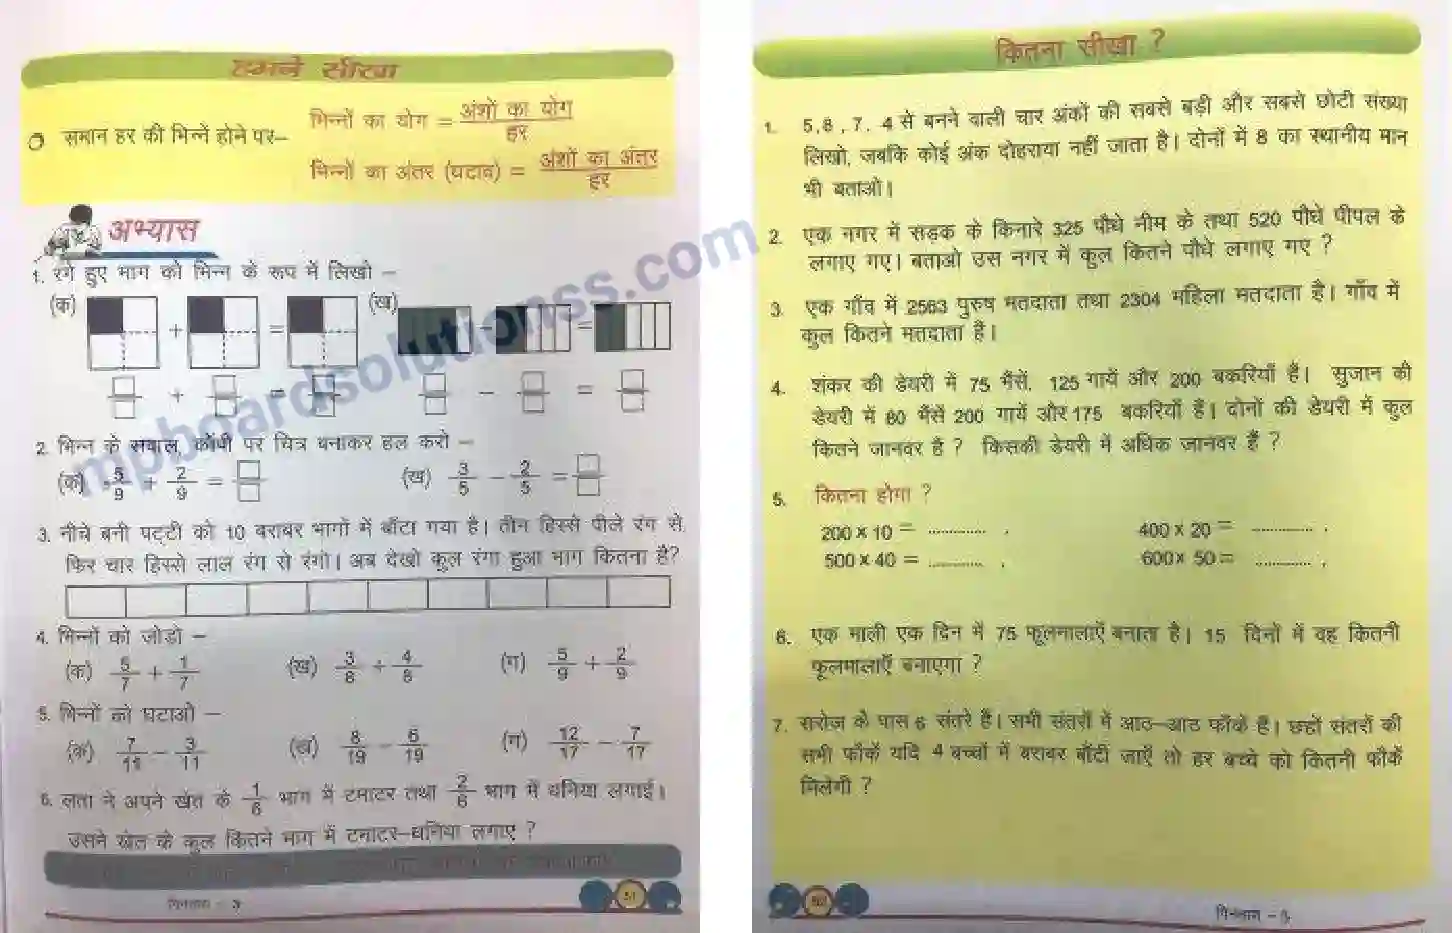 हमने सीखा
समान हर की भिन्नें होने पर–
भिन्नों का योग = अंशों का योग / हर
भिन्नों का अंतर (घटाव) = अंशों का अंतर / हर
अभ्यास
1. रंगे हुए भाग को भिन्न के रूप में लिखो –
(क) + = (ख) – =
+ = – =
2. भिन्न के सवाल, कॉपी पर चित्र बनाकर हल करो –
(क) 5/9 + 2/9 = (ख) 3/5 – 2/5 =
3. नीचे बनी पट्टी को 10 बराबर भागों में बाँटा गया है। तीन हिस्से पीले रंग से
फिर चार हिस्से लाल रंग से रंगो। अब देखो कुल रंगा हुआ भाग कितना है?
4. भिन्नों को जोड़ो –
(क) 5/7 + 1/7 (ख) 3/8 + 4/8 (ग) 5/9 + 2/9
5. भिन्नों को घटाओ –
(क) 7/11 – 3/11 (ख) 8/19 – 6/19 (ग) 12/17 – 7/17
6. लता ने अपने खेत के 1/6 भाग में टमाटर तथा 2/6 भाग में धनिया लगाई।
उसने खेत के कुल कितने भाग में टमाटर–धनिया लगाए ?
51
कितना सीखा ?
1. 5,8, 7, 4 से बनने वाली चार अंकों की सबसे बड़ी और सबसे छोटी संख्या
लिखो, जबकि कोई अंक दोहराया नहीं जाता है। दोनों में 8 का स्थानीय मान
भी बताओ।
2. एक नगर में सड़क के किनारे 325 पौधे नीम के तथा 520 पौधे पीपल के
लगाए गए। बताओ उस नगर में कुल कितने पौधे लगाए गए ?
3. एक गाँव में 2563 पुरुष मतदाता तथा 2304 महिला मतदाता है। गाँव में
कुल कितने मतदाता हैं।
4. शंकर की डेयरी में 75 भैंसें, 125 गायें और 200 बकरियाँ हैं। सुजान की
डेयरी में 80 भैंसें 200 गायें और 175 बकरियाँ हैं। दोनों की डेयरी में कुल
कितने जानवर है ? किसकी डेयरी में अधिक जानवर हैं ?
5. कितना होगा ?
200 x 10 = ............. . 400 x 20 = ............. .
500 x 40 = ............. . 600x 50 = ............. .
6. एक माली एक दिन में 75 फूलमालाएँ बनाता है। 15 दिनों में वह कितनी
फूलमालाएँ बनाएगा ?
7. सरोज के पास 6 संतरे हैं। सभी संतरों में आठ–आठ फाँकें हैं। छहों संतरों की
सभी फाँकें यदि 4 बच्चों में बराबर बाँटी जाएँ तो हर बच्चे को कितनी फाँकें
मिलेगी ?
mpboardsolutionss.com